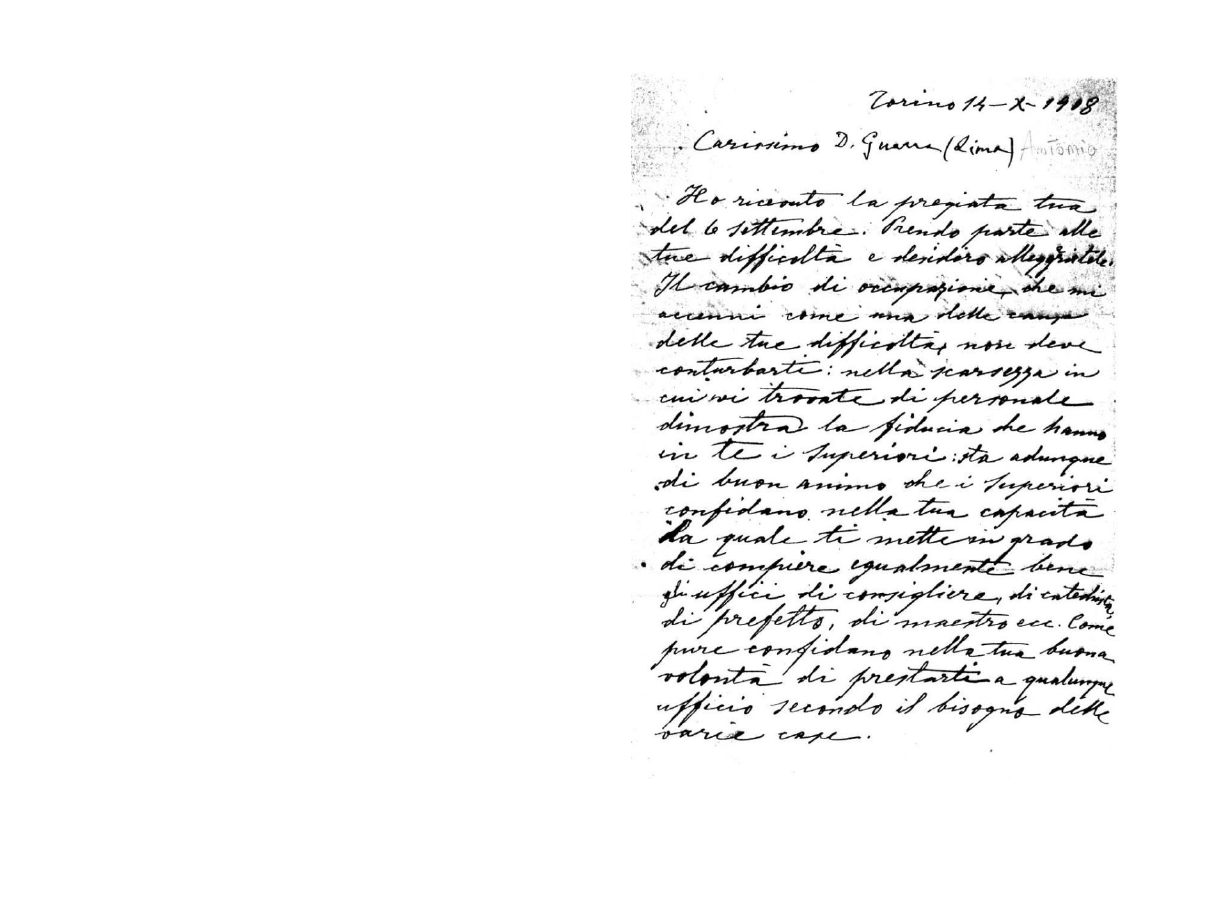 Torino 14-X-1908
Carissimo D. Guerra (Lima) Antonio
Ho ricevuto la pregiata tua
del 6 settembre. Prendo parte alle
tue difficoltà e desidero alleggiartele.
Il cambio di occupazione, che mi
accenni come una delle cause
delle tue difficoltà, non deve
conturbarti: nella scarsezza in
cui vi trovate di personale
dimostra la fiducia che hanno
in te i Superiori: sta adunque
di buon animo che i Superiori
confidano nella tua capacità
la quale ti mette in grado
di compiere egualmente bene
gli uffici di consigliere, di catechista,
di prefetto, di maestro ecc. Come
pure confidano nella tua buona
volontà di prestarti a qualunque
ufficio secondo il bisogno delle
varie case.